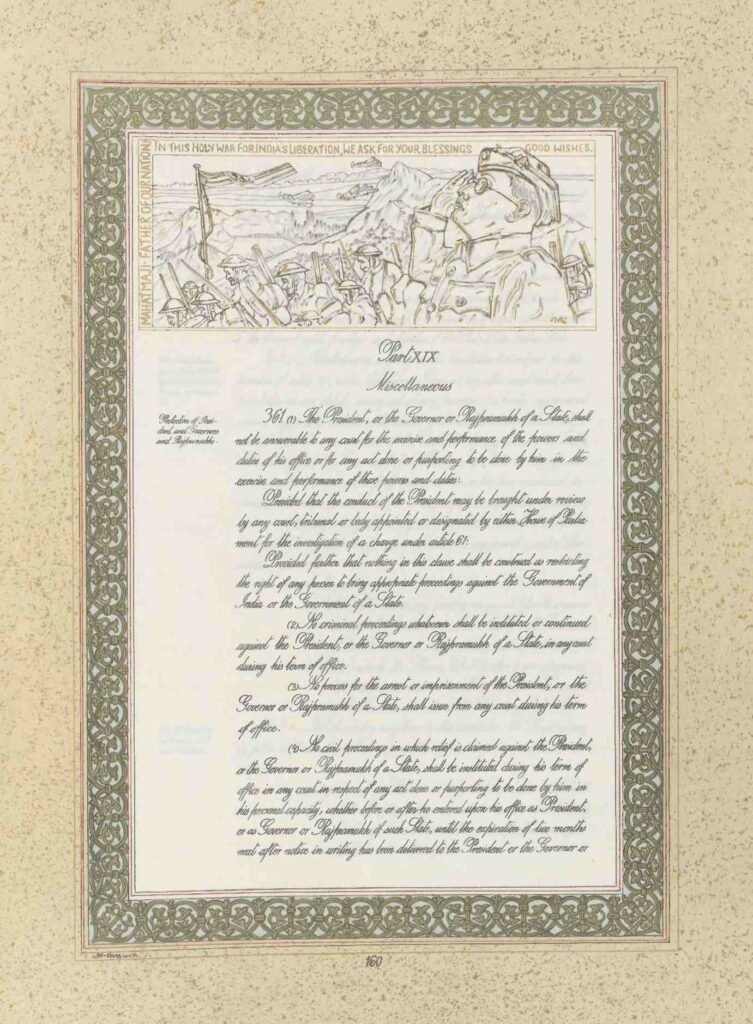 MAHATMAJI - FATHER OF OUR NATION
IN THIS HOLY WAR FOR INDIA'S LIBERATION, WE ASK FOR YOUR BLESSINGS GOOD WISHES.
Part XIX
Miscellaneous
Protection of Presi-
dent and Governors
and Rajpramukhs.
361 (1) The President, or the Governor or Rajpramukh of a State, shall
not be answerable to any court for the exercise and performance of the powers and
duties of his office or for any act done or purporting to be done by him in the
exercise and performance of those powers and duties:
Provided that the conduct of the President may be brought under review
by any court, tribunal or body appointed or designated by either House of Parlia
ment for the investigation of a charge under article 61:
Provided further that nothing in this clause shall be construed as restricting
the right of any person to bring appropriate proceedings against the Government of
India or the Government of a State.
(2) No criminal proceedings whatsoever shall be instituted or continued
against the President, or the Governor or Rajpramukh of a State, in any court
during his term of office.
(3) No process for the arrest or imprisonment of the President, or the
Governor or Rajpramukh of a State, shall issue from any court during his term
of office.
(4) No civil proceedings in which relief is claimed against the President,
or the Governor or Rajpramukh of a State, shall be instituted during his term of
office in any court in respect of any act done or purporting to be done by him in
his personal capacity, whether before or after he entered upon his office as President,
or as Governor or Rajpramukh of such State, until the expiration of two months
next after notice in writing has been delivered to the President or the Governor or
160